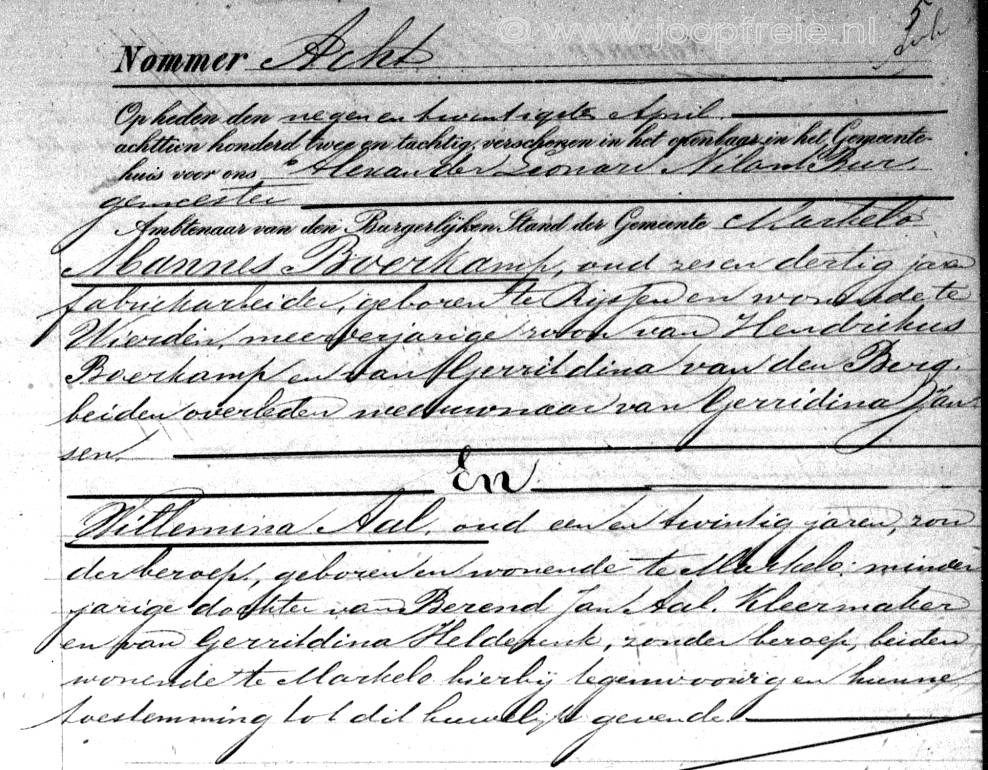 © www.joopfreie.nl
5
Nommer Acht
Op heden den negen en twintigsten April
achttien honderd twee en tachtig, verschenen in het openbaar in het Gemeente-
huis voor ons Alexander Leonard Nilant Bur-
gemeester
Ambtenaar van den Burgerlijken Stand der Gemeente Markelo
Mannes Boerkamp, oud zes en dertig jaar
fabriekarbeider, geboren te Rijssen en wonende te
Wierden, meerderjarige zoon van Hendrikus
Boerkamp en van Gerritdina van den Berg,
beiden overleden weduwnaar van Gerridina Jan-
sen.
En
Willemina Aal, oud een en twintig jaren, zon
der beroep, geboren en wonende te Markelo, minder
jarige dochter van Berend Jan Aal, Kleermaker
en van Gerritdina Heldepink, zonder beroep, beiden
wonende te Markelo hierbij tegenwoordig en hunne
toestemming tot dit huwelijk gevende.